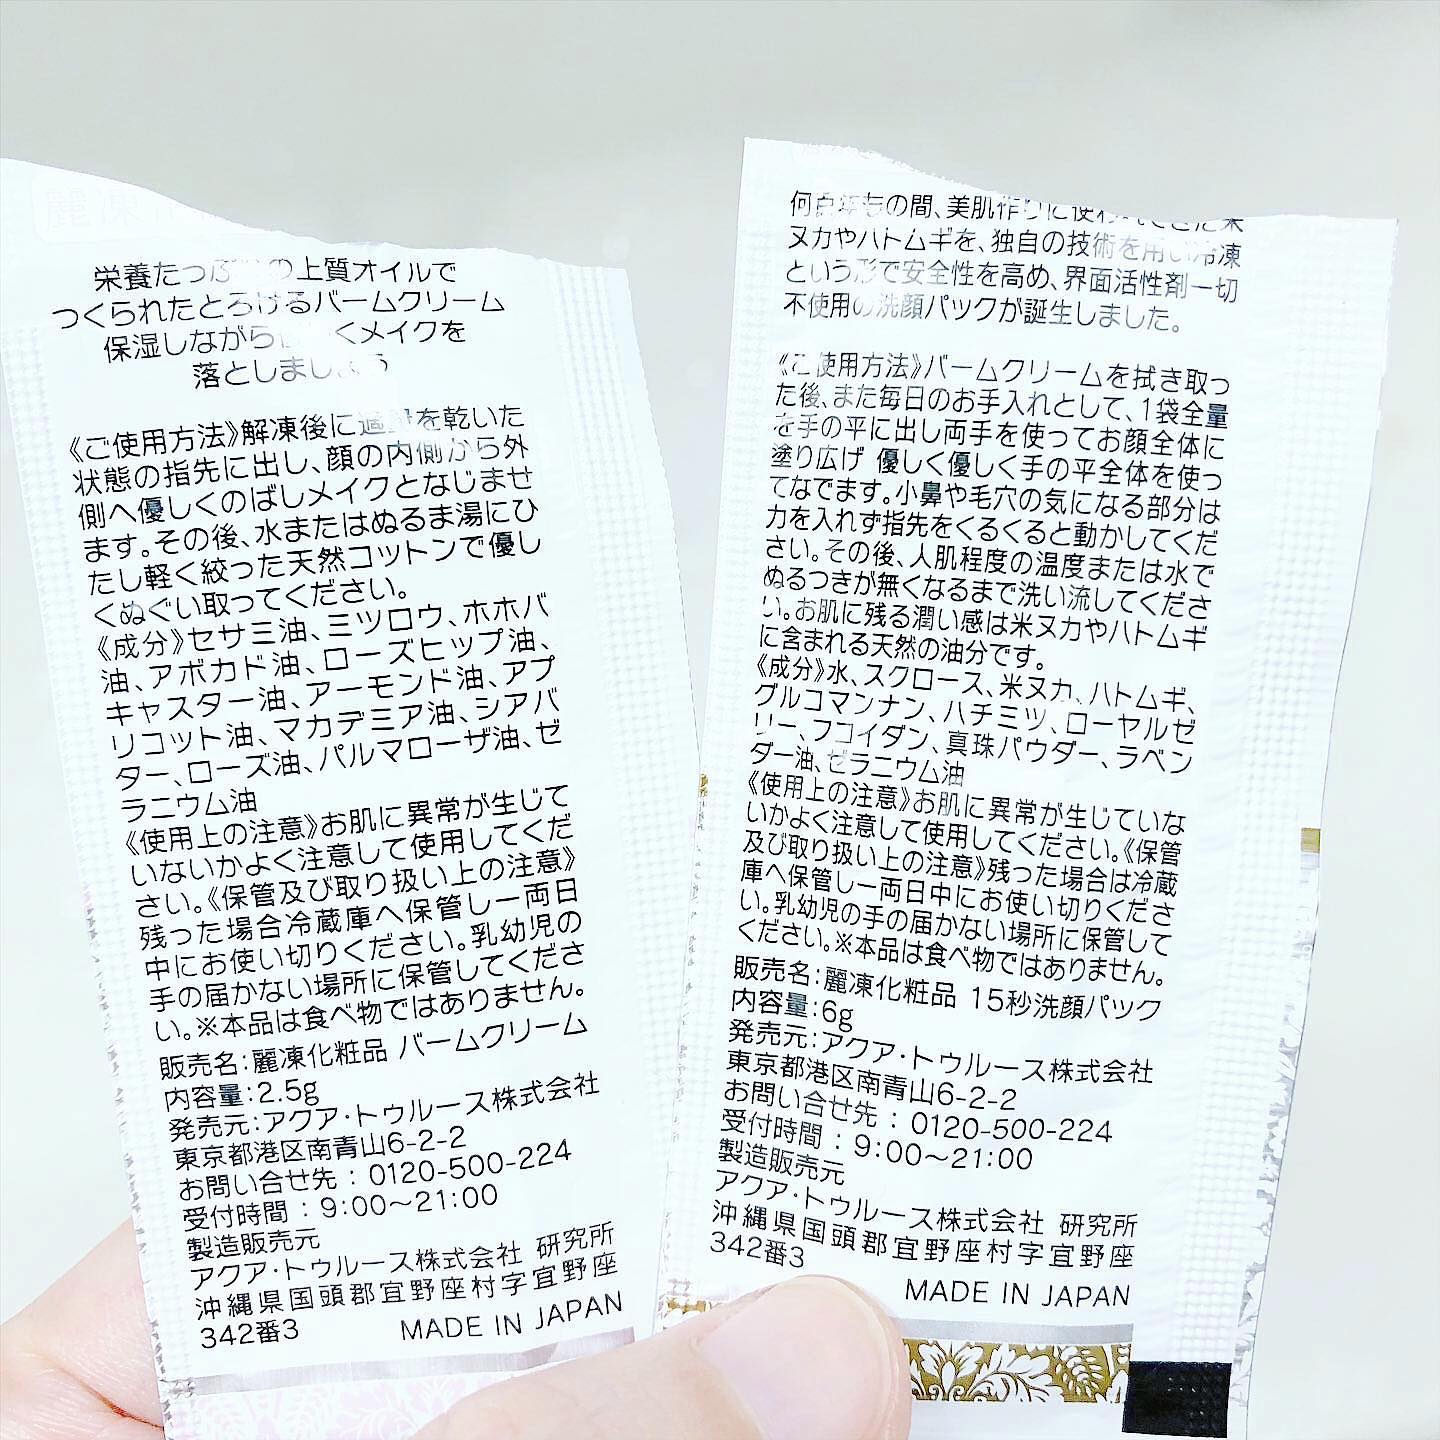 麗凍
栄養たっぷりの上質オイルで
つくられたとろけるバームクリーム
保湿しながら くメイクを
落としましょう
《ご使用方法》解凍後に適量を乾いた
状態の指先に出し、顔の内側から外
側へ優しくのばしメイクとなじませ
ます。その後、水またはぬるま湯にひ
たし軽く絞った天然コットンで優し
くぬぐい取ってください。
《成分》セサミ油、ミツロウ、ホホバ
油、アボカド油、ローズヒップ油、
キャスター油、アーモンド油、アプ
リコット油、マカデミア油、シアバ
ター、ローズ油、パルマローザ油、ゼ
ラニウム油
《使用上の注意》お肌に異常が生じて
いないかよく注意して使用してくだ
さい。《保管及び取り扱い上の注意》
残った場合冷蔵庫へ保管し一両日
中にお使い切りください。乳幼児の
手の届かない場所に保管してくださ
い。※本品は食べ物ではありません。
販売名:麗凍化粧品 バームクリーム
内容量:2.5g
発売元:アクア・トゥルース株式会社
東京都港区南青山6-2-2
お問い合せ先 : 0120-500-224
受付時間 : 9:00～21:00
製造販売元
アクア・トゥルース株式会社 研究所
沖縄県国頭郡宜野座村字宜野座
342番3
MADE IN JAPAN
何百年もの間、美肌作りに使われてきた米
ヌカやハトムギを、独自の技術を用い冷凍
という形で安全性を高め、界面活性剤一切
不使用の洗顔パックが誕生しました。
《ご使用方法》バームクリームを拭き取っ
た後、また毎日のお手入れとして、1袋全量
を手の平に出し両手を使ってお顔全体に
塗り広げ 優しく優しく手の平全体を使っ
てなでます。小鼻や毛穴の気になる部分は
力を入れず指先をくるくると動かしてくだ
さい。その後、人肌程度の温度または水で
ぬるつきが無くなるまで洗い流してくださ
い。お肌に残る潤い感は米ヌカやハトムギ
に含まれる天然の油分です。
《成分》水、スクロース、米ヌカ、ハトムギ、
グルコマンナン、ハチミツ、ローヤルゼ
リー、フコイダン、真珠パウダー、ラベン
ダー油、ゼラニウム油
《使用上の注意》お肌に異常が生じていな
いかよく注意して使用してください。《保管
及び取り扱い上の注意》残った場合は冷蔵
庫へ保管し一両日中にお使い切りくださ
い。乳幼児の手の届かない場所に保管して
ください。※本品は食べ物ではありません。
販売名:麗凍化粧品 15秒洗顔パック
内容量:6g
発売元:アクア・トゥルース株式会社
東京都港区南青山6-2-2
お問い合せ先 : 0120-500-224
受付時間 : 9:00～21:00
製造販売元
アクア・トゥルース株式会社 研究所
沖縄県国頭郡宜野座村字宜野座
342番3
MADE IN JAPAN